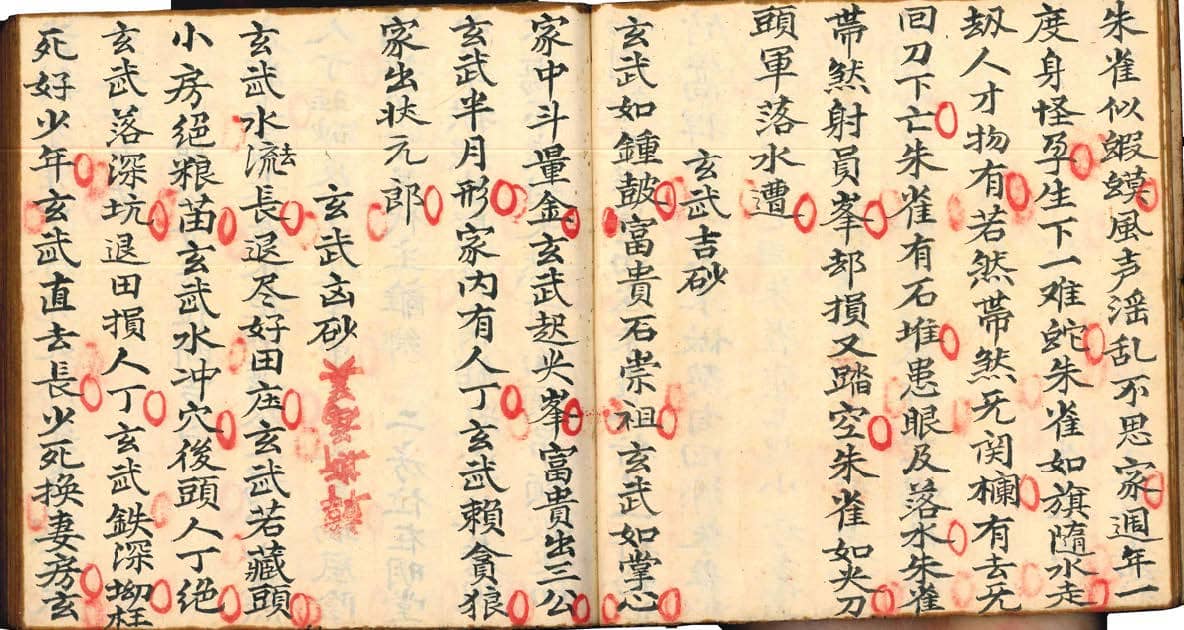 朱雀似蝦蟆風声滛乱不思家週年一
度身怪孕生下一难蛇朱雀如旗隨水走
刼人才物有若然帶煞旡関欄有去旡
回刀下亡朱雀有石堆患眼及落水朱雀
帶煞射員峯却損又踏空朱雀如尖刀
頭軍落水遭
玄武吉砂
玄武如鍾鼓富貴石崇祖玄武如掌心
家中斗量金玄武起尖峯富貴出三公
玄武半月形家内有人丁玄武賴貪狼
家出状元郎
玄武凶砂
玄武水流去長退尽好田庄玄武若藏頭
小房绝粮苗玄武水冲穴後頭人丁绝
玄武落深坑退田損人丁玄武鉄深坳柱
死好少年玄武直去長少死換妻房玄